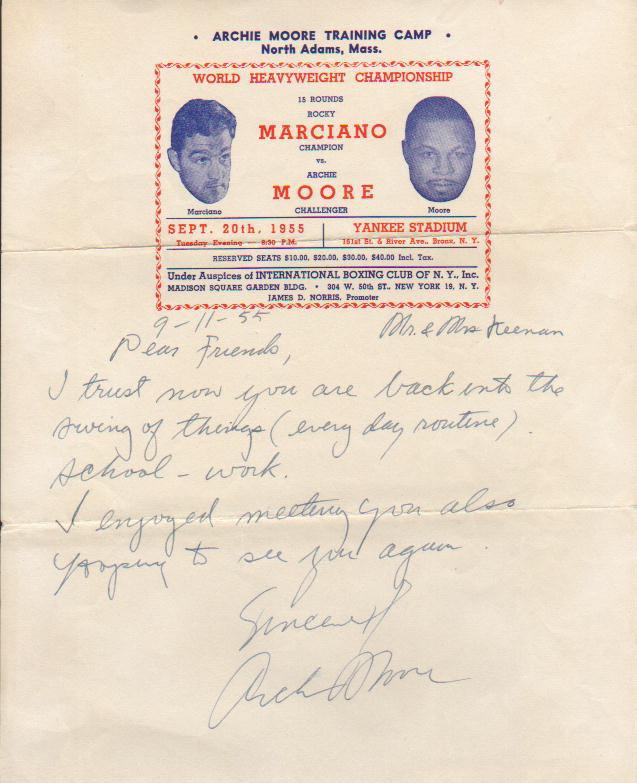 • ARCHIE MOORE TRAINING CAMP •
North Adams, Mass.
WORLD HEAVYWEIGHT CHAMPIONSHIP
15 ROUNDS
ROCKY
MARCIANO
CHAMPION
vs.
ARCHIE
MOORE
CHALLENGER
Marciano
Moore
SEPT. 20th, 1955
Tuesday Evening — 8:30 P.M.
YANKEE STADIUM
161st St. & River Ave., Bronx, N. Y.
RESERVED SEATS $10.00, $20.00, $30.00, $40.00 Incl. Tax.
Under Auspices of INTERNATIONAL BOXING CLUB OF N. Y., Inc.
MADISON SQUARE GARDEN BLDG. • 304 W. 50th ST., NEW YORK 19, N. Y.
JAMES D. NORRIS, Promoter
9-11-55
Mr. & Mrs Keenan
Dear Friends,
I trust now you are back into the
swing of things (every day routine).
school - work.
I enjoyed meeting you also
hoping to see you again.
Sincerely
Archie Moore